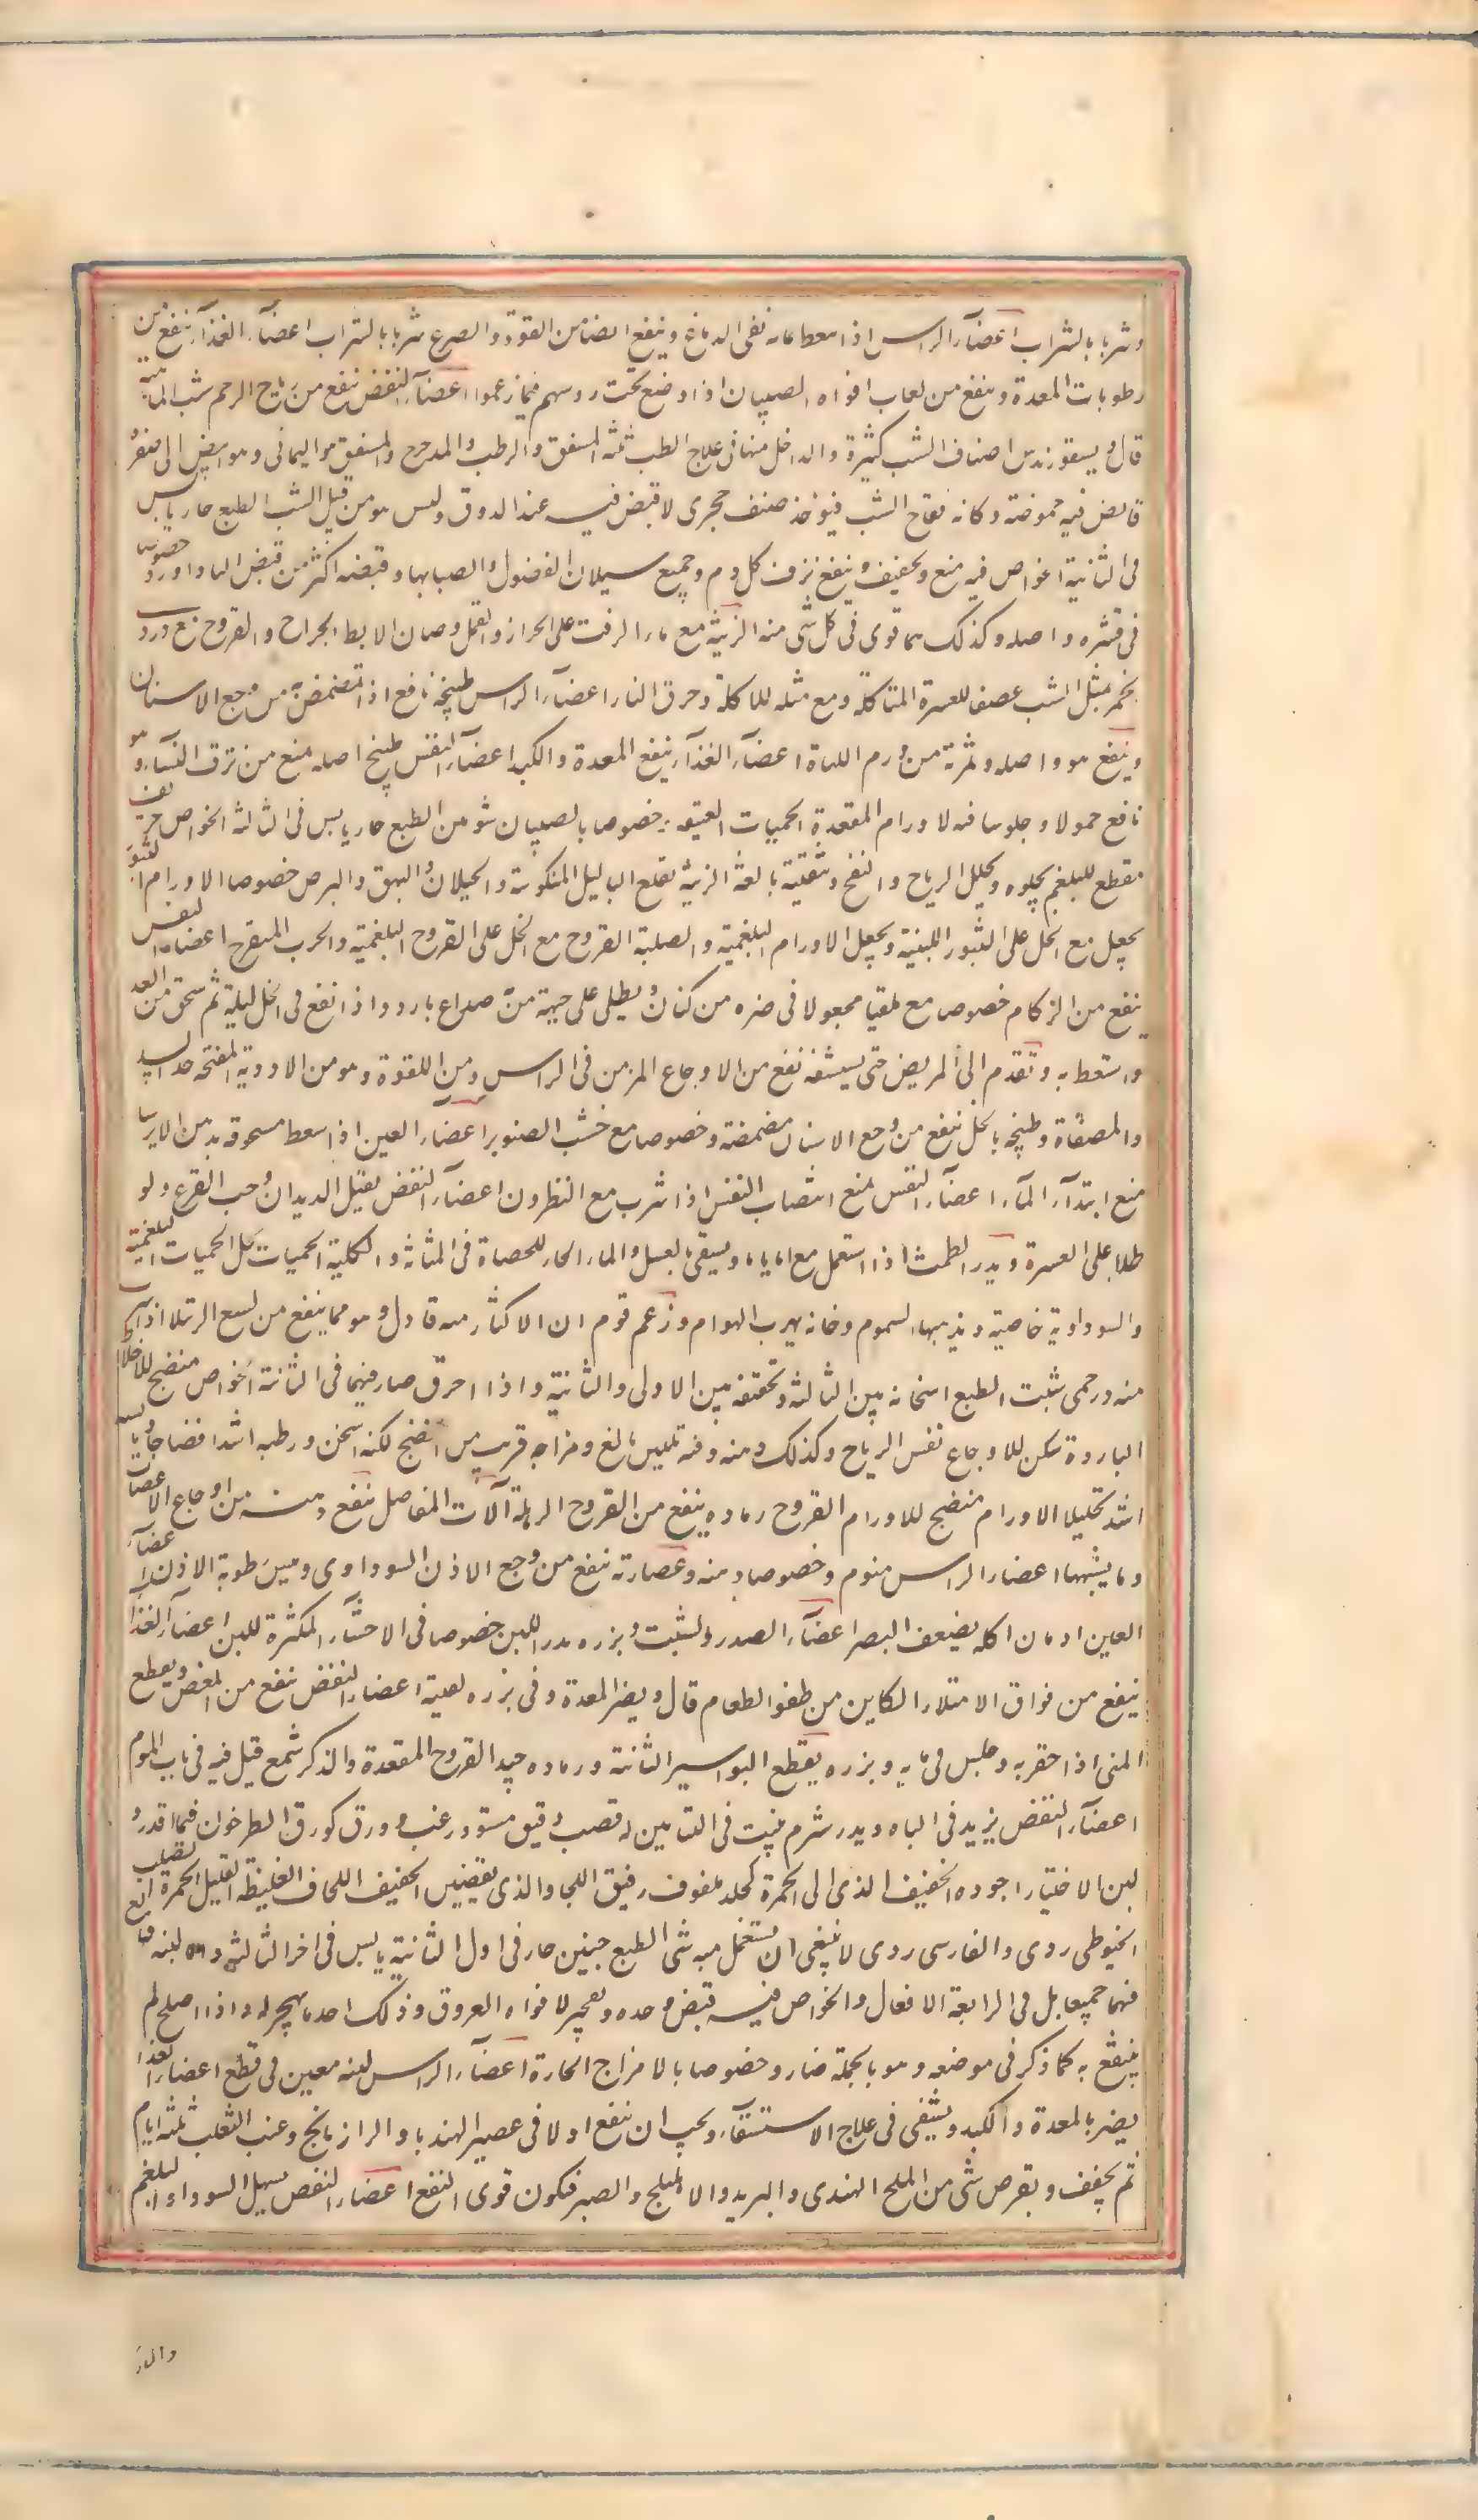 وشربا بالشراب اعضآء الراس اذا سعط بمائه نقى الدماغ وينفع ايضا من اللقوة والصرع شربا بالشراب اعضآء الغذآء ينفع من
رطوبات المعدة وينفع من لعاب افواه الصبيان اذا وضع تحت روسهم فيما زعموا اعضآء النفض ينفع من رياح الرحم شب الماهية
قال ديسقوريدس اصناف الشب كثيرة والداخل منها فى علاج الطب ثلثه المشقق والرطب والمدحرج والمشقق هو اليمانى وهو ابيض الى صفرة
قابض فيه حموضة وكانه فقاح الشب فيوخذ صنف حجرى لا قبض فيه عند الذوق وليس هو من قبيل الشب الطبع حار يابس
فى الثانية الخواص فيه منع وتجفيف وينفع نزف كل دم وجميع سيلان الفضول وانصبابها وقبضه اكثر من قبض الباداورد خصوصا
فى قشره واصله وكذلك هما قوى فى كل شى منه الزينة مع ماء الزفت على الحزاز والقمل وصنان الابط الجراح والقروح مع دردى
الخمر بمثل الشب عصفا للعسرة المتاكلة ومع مثله للاكلة وحرق النار اعضآء الراس طبيخه نافع اذا تمضمض به من وجع الاسنان
وينفع هو واصله وثمرته من ورم اللهاة اعضآء الغذآء ينفع المعدة والكبد اعضآء النفس طبيخ اصله منع من نزف النسآء وهو
نافع حمولا وجلوسا فيه لاورام المقعدة الحميات العتيقة خصوصا بالصبيان شونيز الطبع حار يابس فى الثالثة الخواص حريف
مقطع للبلغم يجلوه ويحلل الرياح والنفخ وتنقيته بالغة الزينة يقلع الثاليل المنكوسة والخيلان والبهق والبرص خصوصا الاورام البثور
يجعل مع الخل على البثور اللبنية ويحلل الاورام البلغمية والصلبة القروح مع الخل على القروح البلغمية والجرب المتقرح اعضاء النفس
ينفع من الزكام خصوصا مع مقليا مجعولا فى صرة من كتان ويطلى على جبهة من به صداع بارد واذا نقع فى الخل ليلة ثم سحق من الغد
واستعط به وتقدم الى المريض حتى يستنشقه نفع من الاوجاع المزمن فى الراس ومن اللقوة وهو من الادوية المفتحة جدا لسدد
والمصفاة وطبيخه بالخل ينفع من وجع الاسنان مضمضة وخصوصا مع خشب الصنوبر اعضآء العين اذا سعط مسحوقه بدهن الايرسا
منع ابتدآء المآء اعضآء النفس منع انتصاب النفس اذا شرب مع النطرون اعضآء النفض يقتل الديدان وحب القرع ولو
طلاء على السرة ويدر الطمث اذا استعمل مع اياما ويسقى بالعسل والماء الحار للحصاة فى المثانة والكلية الحميات يحل الحميات البلغمية
والسوداوية خاصية ويذهبها السموم دخانه يهرب الهوام وزعم قوم ان الاكثار منه قاتل وهو مما ينفع من لسع الرتيلا اذا شرب
منه درخمى شبت الطبع اسخانه بين الثالثة وتجفيفه بين الاولى والثانية واذا احرق صار فيهما فى الثالثة الخواص منضج للاخلاط
الباردة مسكن للاوجاع نفس الرياح وكذلك دهنه وفيه تليين بالغ ومزاجه قريب من المنضج لكنه اسخن ورطبه اشد انضاجا ويابسه
اشد تحليلا الاورام منضج للاورام القروح رماده ينفع من القروح الرهلة آلات المفاصل ينفع دهنه من اوجاع الاعصاب
وما يشبهها اعضاء الراس منوم وخصوصا دهنه وعصارته ينفع من وجع الاذن السوداوى وييبس رطوبة الاذن اعضآء
العين ادمان اكله يضعف البصر اعضآء الصدر والشبت وبزره يدر اللبن خصوصا فى الاحشآء المكثرة للبن اعضآء الغذا
ينفع من فواق الامتلاء الكاين من طفو الطعام قال ويضر المعدة وفى بزره تغثية اعضاء النفض ينفع من المغص ويقطع
المنى اذا احتقر به وجلس فى مايه وبزره يقطع البواسير الثابتة ورماده جيد القروح المقعدة والذكر شمع قيل فيه فى باب الموم
اعضآء النفض يزيد فى الباه ويدر شبرم ينبت فى البساتين له قصب دقيق مستو وزغب وورق كورق الطرخون فيما اقدر
لبن الاختيار اجوده الخفيف الذى الى الحمرة كجلد ملفوف رقيق اللحا والذى بقصبين الخفيف اللحاف الغليظة القليل الحمرة الصلب
الخيوطى ردى والفارسى ردى لا ينبغى ان يستعمل منه شى الطبع حنين حار فى اول الثانية يابس فى اخر الثالثة واما لبنه فانه
فيهما جميعا بل فى الرابعة الافعال والخواص فيه قبض وحدة وتفجير لافواه العروق وذلك احد ما يهجر له واذا اصلح لم
ينتفع به كما ذكر فى موضعه وهو بالجملة ضار وخصوصا بالامزاج الحارة اعضآء الراس لبنه معين فى قطع اعضاء الغذا
يضر بالمعدة والكبد ويسقى فى علاج الاستسقآء ويجب ان ينقع اولا فى عصير الهندبا والرازيانج وعنب الثعلب ثلثه ايام
ثم يجفف ويقرص بشى من الملح الهندى والتربد والاهليلج والصبر فيكون قوى النفع اعضاء النفض يسهل السوداء والبلغم
والما